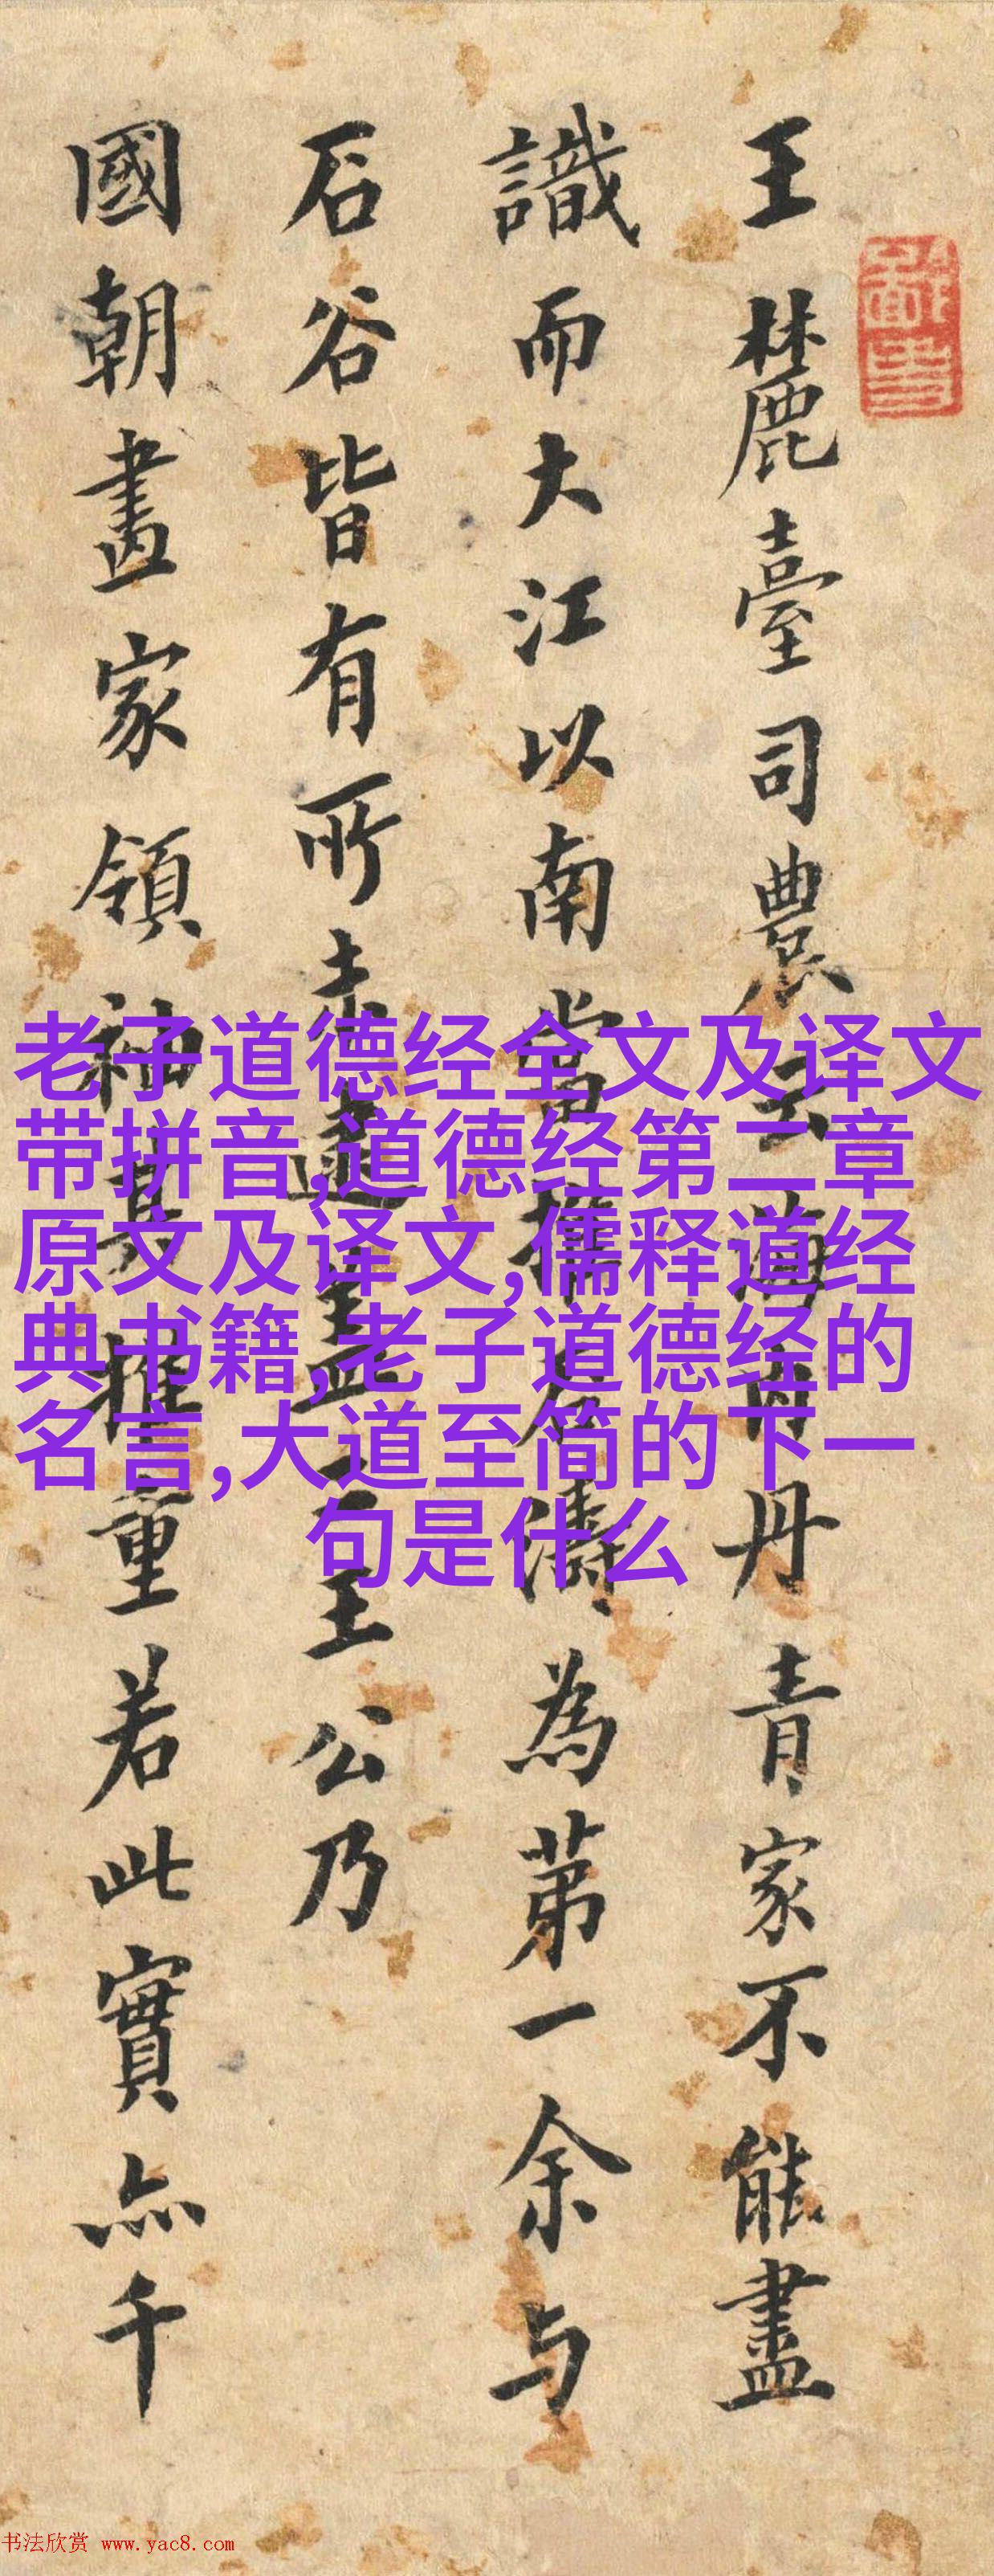 王麓臺司農云海內丹青家不能盡
識而大江以南當推君濤為第一余与
石谷皆有所未逮蓋王公乃
國朝畫家領袖其推重若此實亦千
老子道德经全文及译文
带拼音,道德经第二章
原文及译文,儒释道经
典书籍,老子道德经的
名言,大道至简的下一
句是什么
书法欣赏 www.yac8.com